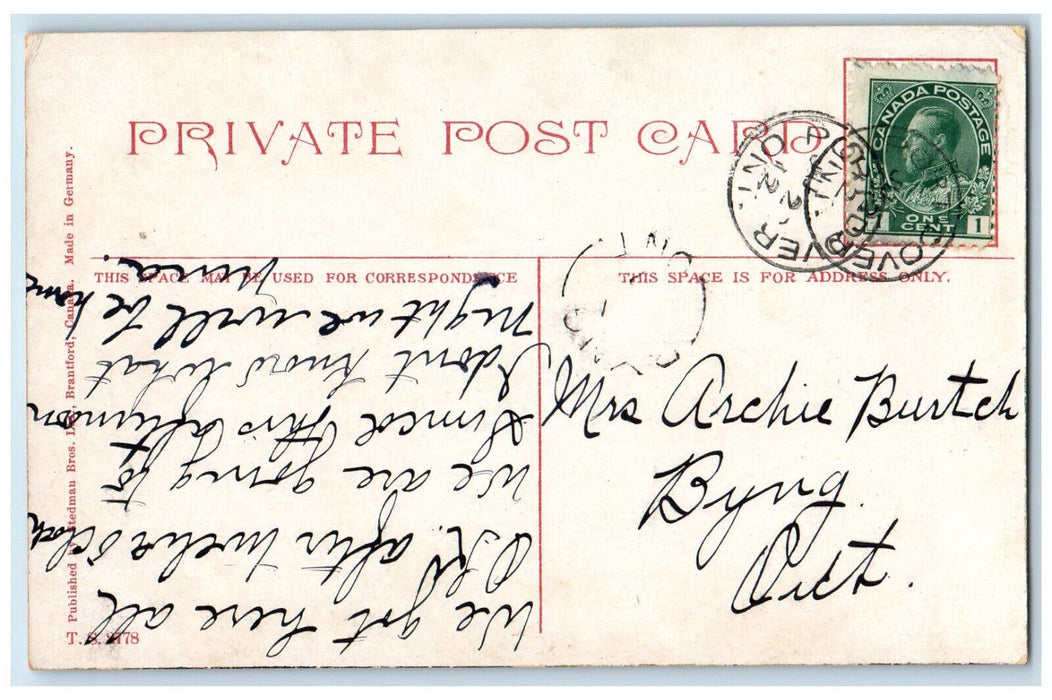 PRIVATE POST CARD
CANADA POSTAGE
ONE CENT
1
THIS SPACE MAY BE USED FOR CORRESPONDENCE
THIS SPACE IS FOR ADDRESS ONLY.
We got here all
O.K. after twelve oclock
We are going to
Simcoe this afternoon
I dont know what
night we will be home
Mrs Archie Burtch
Byng
Ont.
Published by Stedman Bros. Ltd. Brantford, Canada. Made in Germany.
T. S. 2778